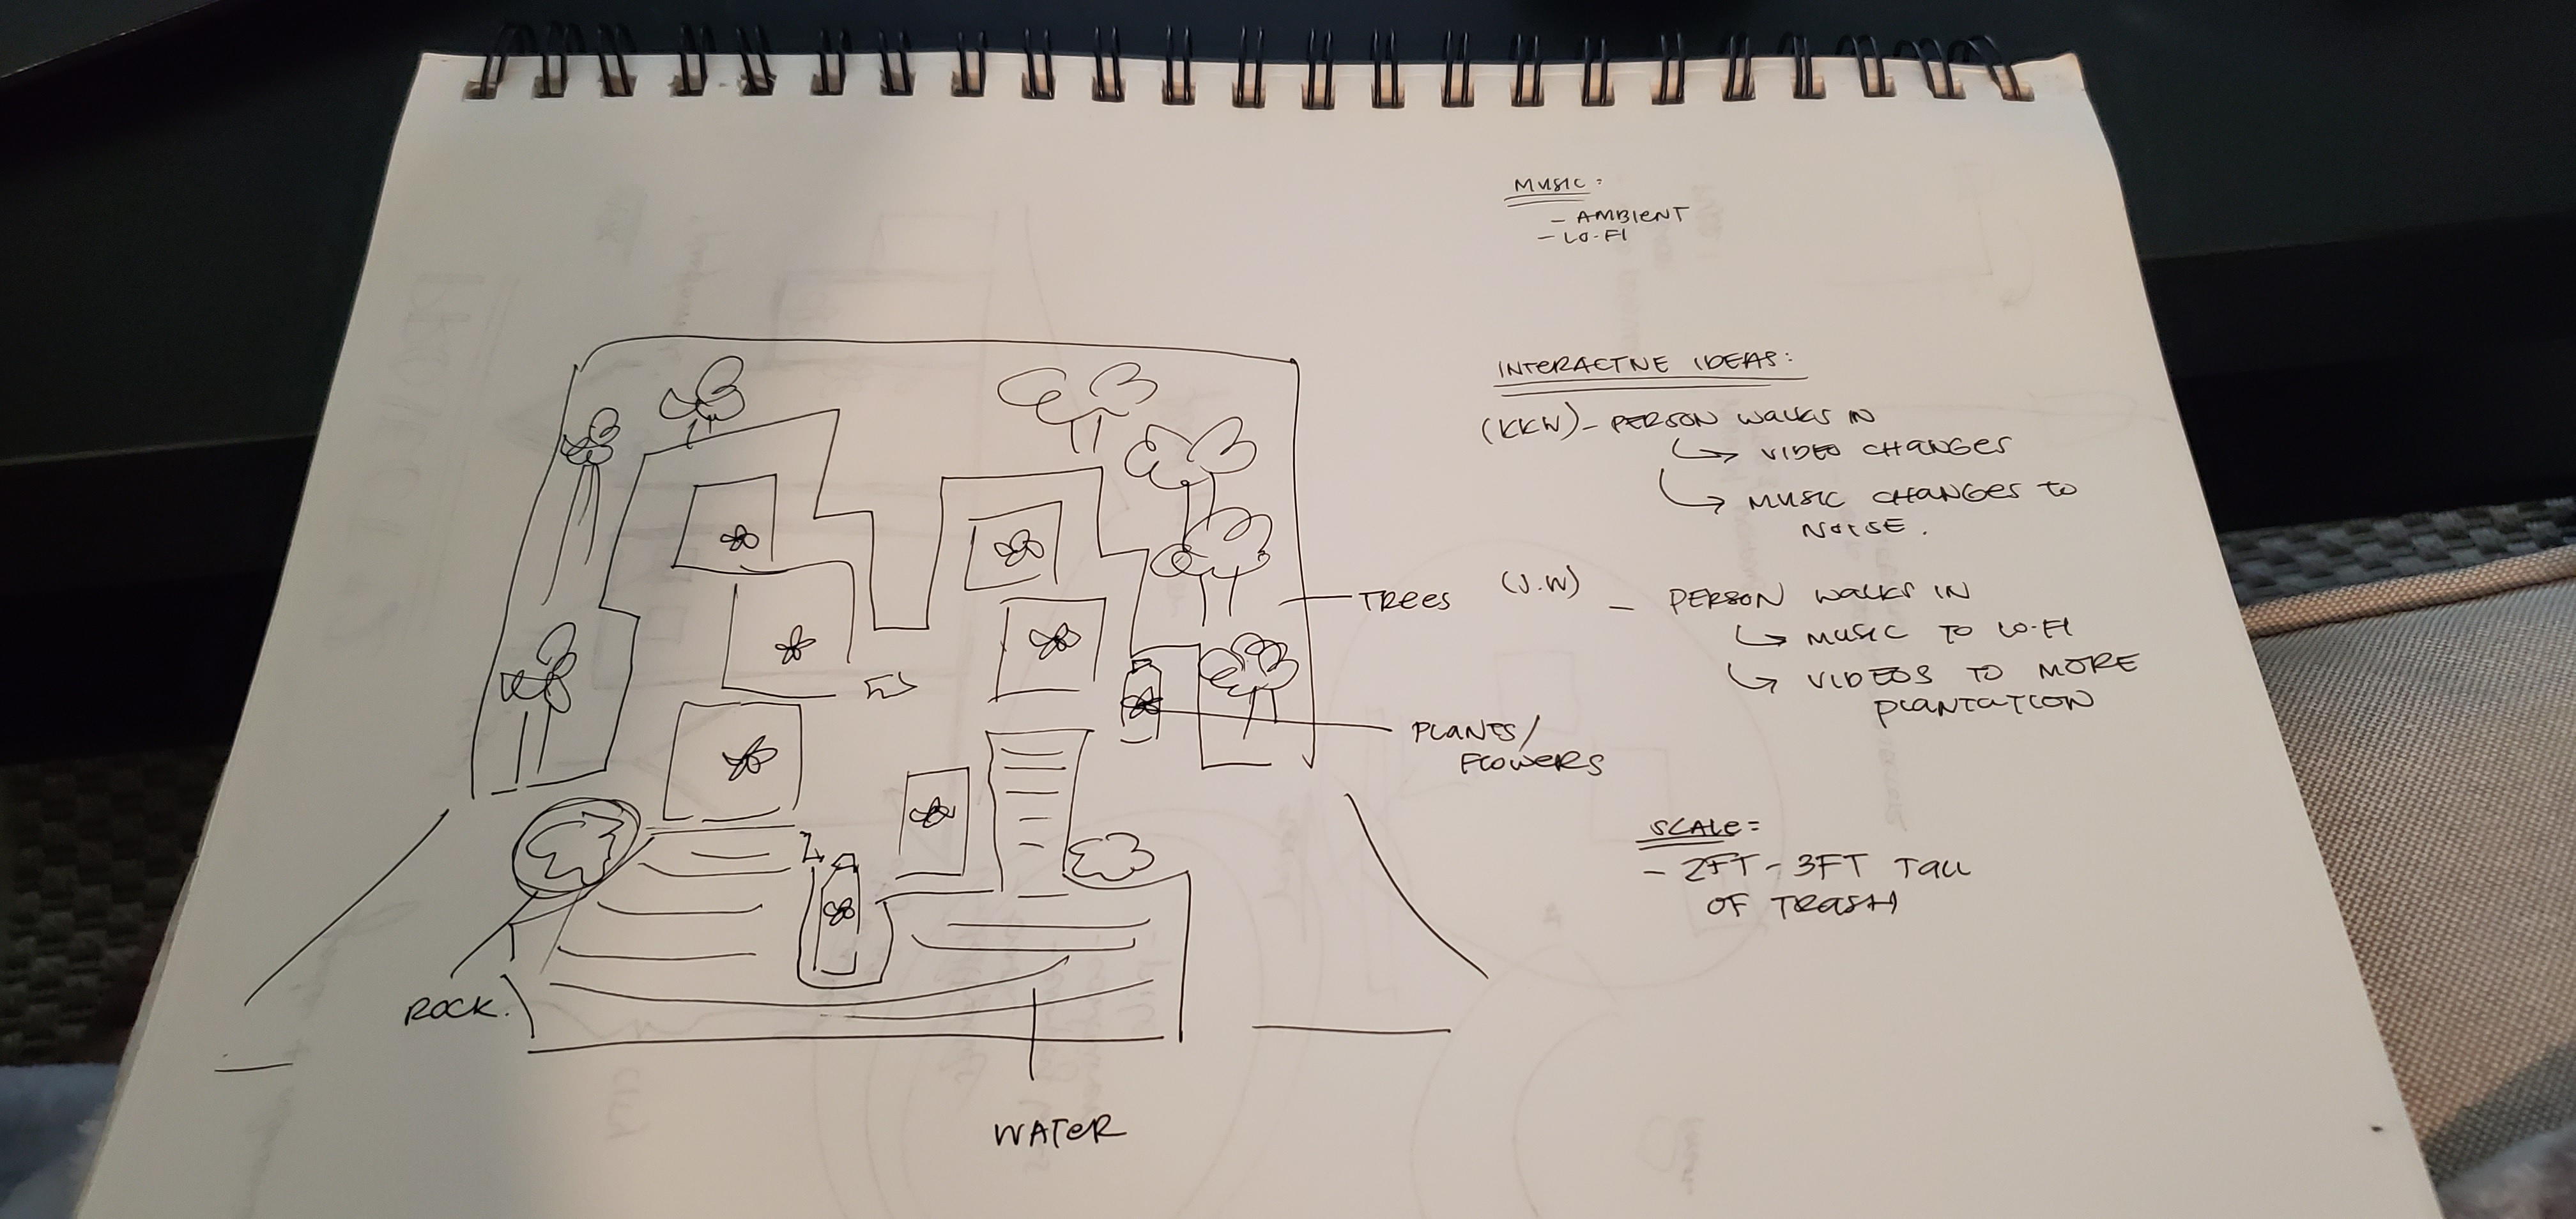 MUSIC:
- AMBIENT
- LO-FI
INTERACTIVE IDEAS:
(KKW) - PERSON WALKS IN
↳ VIDEO CHANGES
↳ MUSIC CHANGES TO
NOISE.
(J.W) - PERSON WALKS IN
↳ MUSIC TO LO-FI
↳ VIDEOS TO MORE
PLANTATION
TREES
PLANTS/
FLOWERS
SCALE:
- 2FT - 3FT TALL
OF TRASH
ROCK.
WATER